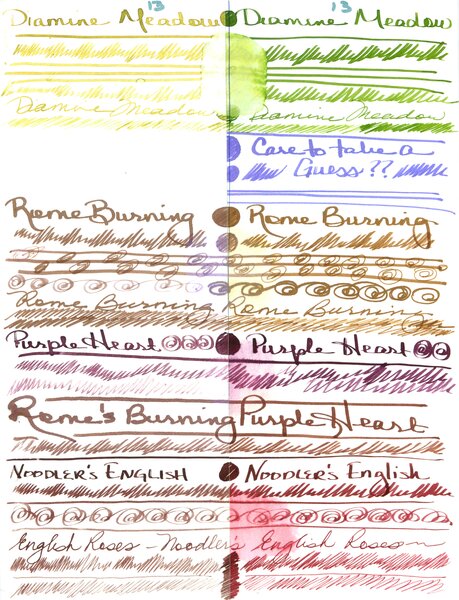 13 13
Diamine Meadow Diamine Meadow
Diamine Meadow Diamine Meadow
Care to take a
Guess??
Rome Burning Rome Burning
Rome Burning Rome Burning
Purple Heart Purple Heart
Rome's Burning Purple Heart
NOODLER'S ENGLISH NOODLER'S English
English Roses - Noodler's English Roses